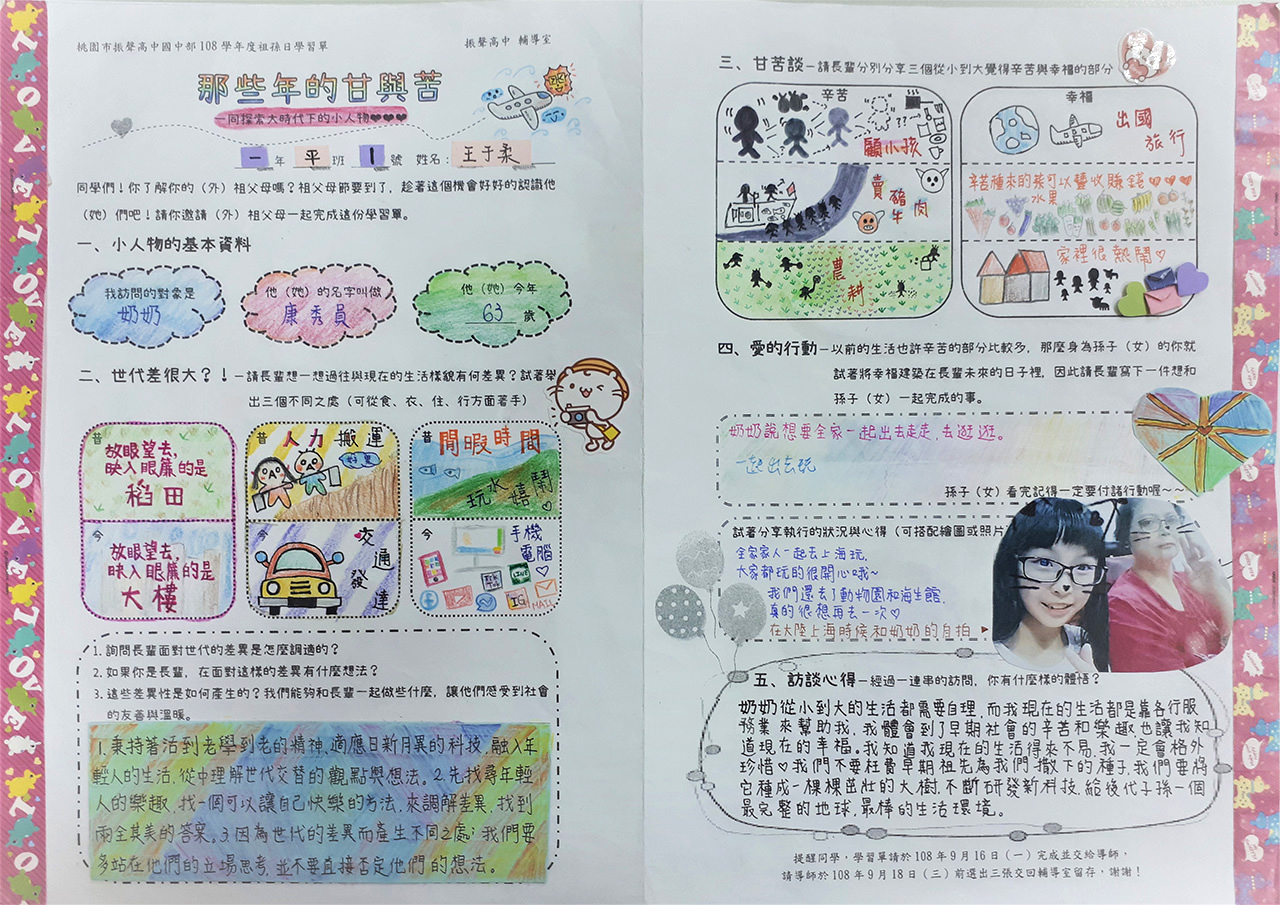 桃園市振聲高中國中部 108 學年度祖孫日學習單
振聲高中 輔導室
那些年的甘與苦
一同探索大時代下的小人物❤❤❤
一 年 平 班 1 號 姓名：王于柔
同學們！你了解你的（外）祖父母嗎？祖父母節要到了，趁著這個機會好好的認識他
（她）們吧！請你邀請（外）祖父母一起完成這份學習單。
一、小人物的基本資料
我訪問的對象是
奶奶
他（她）的名字叫做
康秀員
他（她）今年
63 歲
二、世代差很大？！－請長輩想一想過往與現在的生活樣貌有何差異？試著舉
出三個不同之處（可從食、衣、住、行方面著手）
昔
放眼望去，
映入眼簾的是
稻田
昔
人力搬運
好累
昔
閒暇時間
玩水嬉鬧
今
放眼望去，
映入眼簾的是
大樓
今
交通發達
今
手機
電腦
LINE
IG
MAIL
1. 詢問長輩面對世代的差異是怎麼調適的？
2. 如果你是長輩，在面對這樣的差異有什麼想法？
3. 這些差異性是如何產生的？我們能夠和長輩一起做些什麼，讓他們感受到社會
的友善與溫暖。
1. 秉持著活到老學到老的精神，適應日新月異的科技，融入年
輕人的生活，從中理解世代交替的觀點與想法。2. 先找尋年輕
人的樂趣，找一個可以讓自己快樂的方法，來調解差異，找到
兩全其美的答案。3. 因為世代的差異而產生不同之處；我們要
多站在他們的立場思考，並不要直接否定他們的想法。
三、甘苦談－請長輩分別分享三個從小到大覺得辛苦與幸福的部分
辛苦
顧小孩
賣豬牛肉
農耕
幸福
出國
旅行
辛苦種來的菜可以豐收賺錢
水果
家裡很熱鬧♡
四、愛的行動－以前的生活也許辛苦的部分比較多，那麼身為孫子（女）的你就
試著將幸福建築在長輩未來的日子裡，因此請長輩寫下一件想和
孫子（女）一起完成的事。
奶奶說想要全家一起出去走走，去逛逛。
一起出去玩
孫子（女）看完記得一定要付諸行動喔～～
試著分享執行的狀況與心得（可搭配繪圖或照片
全家家人一起去上海玩，
大家都玩的很開心哦~
我們還去了動物園和海生館，
真的很想再去一次♡
在大陸上海時候和奶奶的自拍 ▶
五、訪談心得－經過一連串的訪問，你有什麼樣的體悟？
奶奶從小到大的生活都需要自理，而我現在的生活都是靠各行服
務業來幫助我，我體會到了早期社會的辛苦和樂趣也讓我知
道現在的幸福。我知道我現在的生活得來不易，我一定會格外
珍惜♡我們不要枉費早期祖先為我們撒下的種子，我們要將
它種成一棵棵茁壯的大樹，不斷研發新科技，給後代子孫一個
最完整的地球，最棒的生活環境。
提醒同學，學習單請於 108 年 9 月 16 日（一）完成並交給導師，
請導師於 108 年 9 月 18 日（三）前選出三張交回輔導室留存，謝謝！